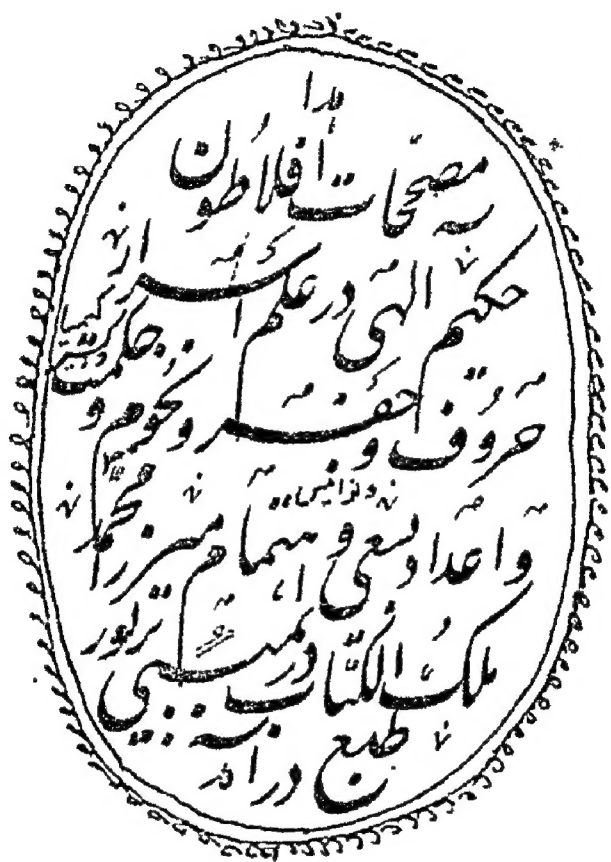 هذا
مصححات افلاطون
حکیم الهی در علم اسرار
حروف و جفر و نجوم و حکمت
و اعداد بسعی و اهتمام میرزا محمد
ملک الکتاب در بمبئی بزیور
طبع در آمد